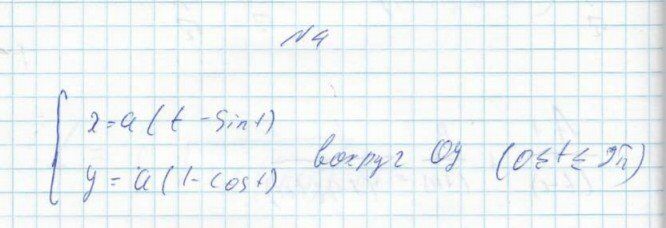 №4
x=a(t-sint)
y=a(1-cost) вокруг Oy (0≤t≤2π)